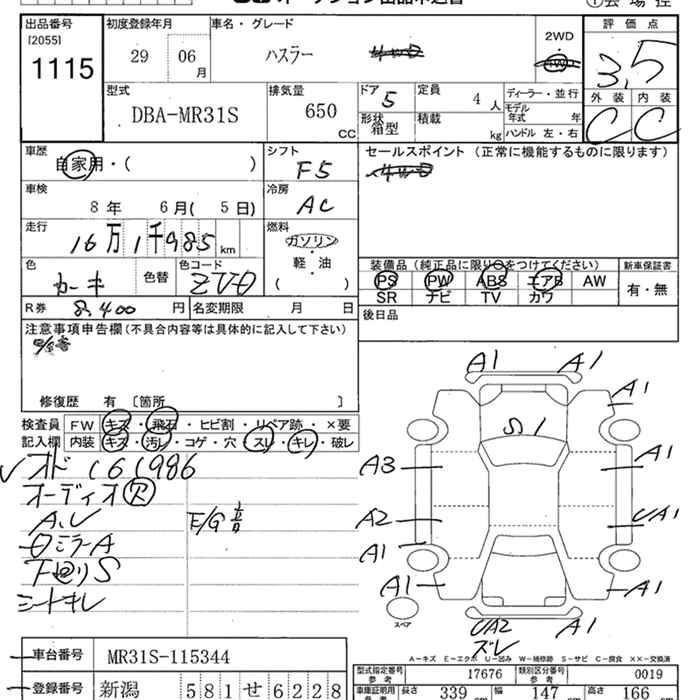 出品番号 初度登録年月 車名・グレード 評価点
[2055] 2WD
1115 29 06月 ハスラー 4WD 4W 3.5
型式 排気量 ドア 定員 ディーラー・並行 外装 内装
DBA-MR31S 650 CC 5 4人 モデル年式 年 C C
形状 箱型 積載 kg ハンドル 左・右
車歴 シフト セールスポイント (正常に機能するものに限ります)
自家用・( ) F5 4WD
車検 冷房
8年 6月(5日) AC
走行 燃料
16万1千985km ガソリン
色 色替 色コード 軽・油 装備品 (純正品に限り○をつけてください) 新車保証書
カーキ ZVD ( ) PS PW ABS エアB AW 有・無
R券 8,400円 名変期限 月 日 SR ナビ TV カワ
注意事項申告欄(不具合内容等は具体的に記入して下さい) 後日品
修復歴 有 〔箇所 〕
検査員 FW キズ・飛石・ヒビ割・リペア跡・×要
記入欄 内装 キズ・汚レ・コゲ・穴・スレ・キレ・破レ
オド 161986
オーディオR
A,V E/G音
ロミラーA
下廻りS
シートキレ
A1 A1
A1
S1
A3 A1
A2 UA1
A1
A1 A1
スペア
UA2 A1
ズレ
A-キズ E-エクボ U-凹み W-補修跡 S-サビ C-腐食 ××-交換済
車台番号 MR31S-115344 型式指定番号 参考 17676 類別区分番号 参考 0019
登録番号 新潟 581せ6228 車庫証明用 長さ 339 cm 幅 147 cm 高さ 166 cm